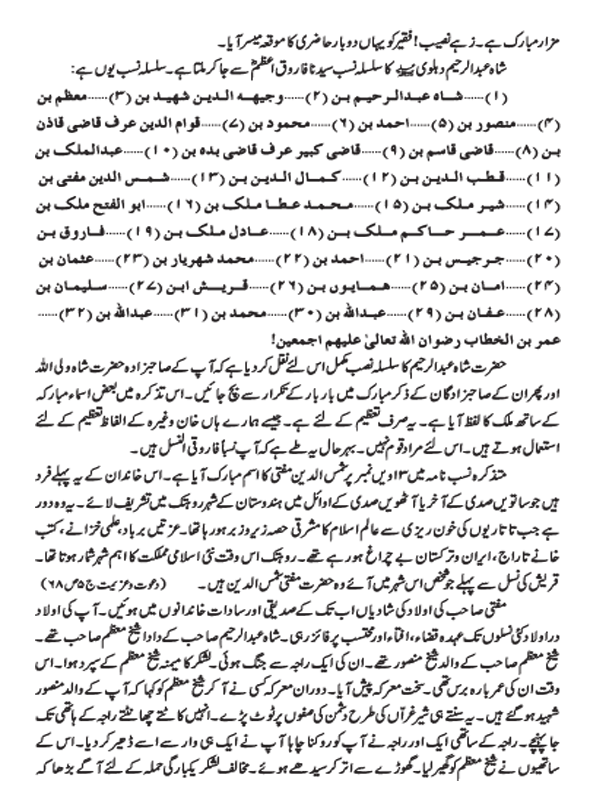 مزار مبارک ہے۔ زہے نصیب! فقیر کو یہاں دو بار حاضری کا موقعہ میسر آیا۔
شاہ عبدالرحیم دہلوی کا سلسلہ نسب سیدنا فاروق اعظمؓ سے جا کر ملتا ہے۔ سلسلہ نسب یوں ہے:
(۱)......شاہ عبدالرحیم بن (۲)......وجیہہ الدین شہید بن (۳)......معظم بن
(۴)......منصور بن (۵)......احمد بن (۶)......محمود بن (۷)......قوام الدین عرف قاضی قاذن
بن (۸)......قاضی قاسم بن (۹)......قاضی کبیر عرف قاضی بدہ بن (۱۰)......عبدالملک بن
(۱۱)......قطب الدین بن (۱۲)......کمال الدین بن (۱۳)......شمس الدین مفتی بن
(۱۴)......شیر ملک بن (۱۵)......محمد عطا ملک بن (۱۶)......ابو الفتح ملک بن
(۱۷)......عمر حاکم ملک بن (۱۸)......عادل ملک بن (۱۹)......فاروق بن
(۲۰)......جرجیس بن (۲۱)......احمد بن (۲۲)......محمد شہریار بن (۲۳)......عثمان بن
(۲۴)......امان بن (۲۵)......ھمایوں بن (۲۶)......قریش ابن (۲۷)......سلیمان بن
(۲۸)......عفان بن (۲۹)......عبداللہ بن (۳۰)......محمد بن (۳۱)......عبداللہ بن (۳۲)......
عمر بن الخطاب رضوان اللہ تعالیٰ علیہم اجمعین!
حضرت شاہ عبدالرحیم کا سلسلہ نصب مکمل اس لئے نقل کر دیا ہے کہ آپ کے صاحبزادہ حضرت شاہ ولی اللہ
اور پھر ان کے صاحبزادگان کے ذکر مبارک میں بار بار کے تکرار سے بچ جائیں۔ اس تذکرہ میں بعض اسماء مبارکہ
کے ساتھ ملک کا لفظ آیا ہے۔ یہ صرف تعظیم کے لئے ہے۔ جیسے ہمارے ہاں خان وغیرہ کے الفاظ تعظیم کے لئے
استعمال ہوتے ہیں۔ اس لئے مراد قوم نہیں۔ بہرحال یہ طے ہے کہ آپ نسباً فاروقی النسل ہیں۔
متذکرہ نسب نامہ میں ۱۳ ویں نمبر پر شمس الدین مفتی کا اسم مبارک آیا ہے۔ اس خاندان کے یہ پہلے فرد
ہیں جو ساتویں صدی کے آخر یا آٹھویں صدی کے اوائل میں ہندوستان کے شہر روہتک میں تشریف لائے۔ یہ وہ دور
ہے جب تاتاریوں کی خون ریزی سے عالم اسلام کا مشرقی حصہ زیروزبر ہو رہا تھا۔ عزتیں برباد، علمی خزانے، کتب
خانے تاراج، ایران وترکستان بے چراغ ہو رہے تھے۔ روہتک اس وقت نئی اسلامی مملکت کا اہم شہر شمار ہوتا تھا۔
قریش کی نسل سے پہلے جو شخص اس شہر میں آئے وہ حضرت مفتی شمس الدین ہیں۔ (دعوت وعزیمت ج۵ ص۶۸)
مفتی صاحب کی اولاد کی شادیاں اب تک کے صدیقی اور سادات خاندانوں میں ہوئیں۔ آپ کی اولاد
در اولاد کئی نسلوں تک عہدہ قضاء، افتاء اور محتسب پر فائز رہی۔ شاہ عبدالرحیم صاحب کے دادا شیخ معظم صاحب تھے۔
شیخ معظم صاحب کے والد شیخ منصور تھے۔ ان کی ایک راجہ سے جنگ ہوئی۔ لشکر کا میمنہ شیخ معظم کے سپرد ہوا۔ اس
وقت ان کی عمر بارہ برس تھی۔ سخت معرکہ پیش آیا۔ دوران معرکہ کسی نے آ کر شیخ معظم کو کہا کہ آپ کے والد منصور
شہید ہو گئے ہیں۔ یہ سنتے ہی شیر غراں کی طرح دشمن کی صفوں پر ٹوٹ پڑے۔ انہیں کاٹتے چھانٹتے راجہ کے ہاتھی تک
جا پہنچے۔ راجہ کے ساتھی ایک اور راجہ نے آپ کو روکنا چاہا آپ نے ایک ہی وار سے اسے ڈھیر کر دیا۔ اس کے
ساتھیوں نے شیخ معظم کو گھیر لیا۔ گھوڑے سے اتر کر سیدھے ہوئے۔ مخالف لشکر یکبارگی حملہ کے لئے آگے بڑھا کہ